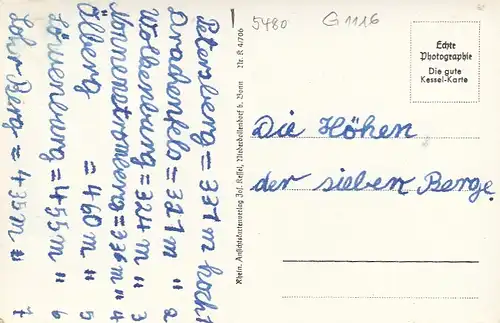 Petersberg = 331 m hoch 1
Drachenfels = 321 m " 2
Wolkenburg = 324 m " 3
Nonnenstromberg = 336 m " 4
Ölberg = 460 m " 5
Löwenburg = 455 m " 6
Lohrberg = 435 m " 7
Rhein. Ansichtskartenverlag Jos. Kessel, Niederdollendorf b. Bonn Nr. K 4/706
5480 G 1116
Echte
Photographie
Die gute
Kessel-Karte
Die Höhen
der sieben Berge.